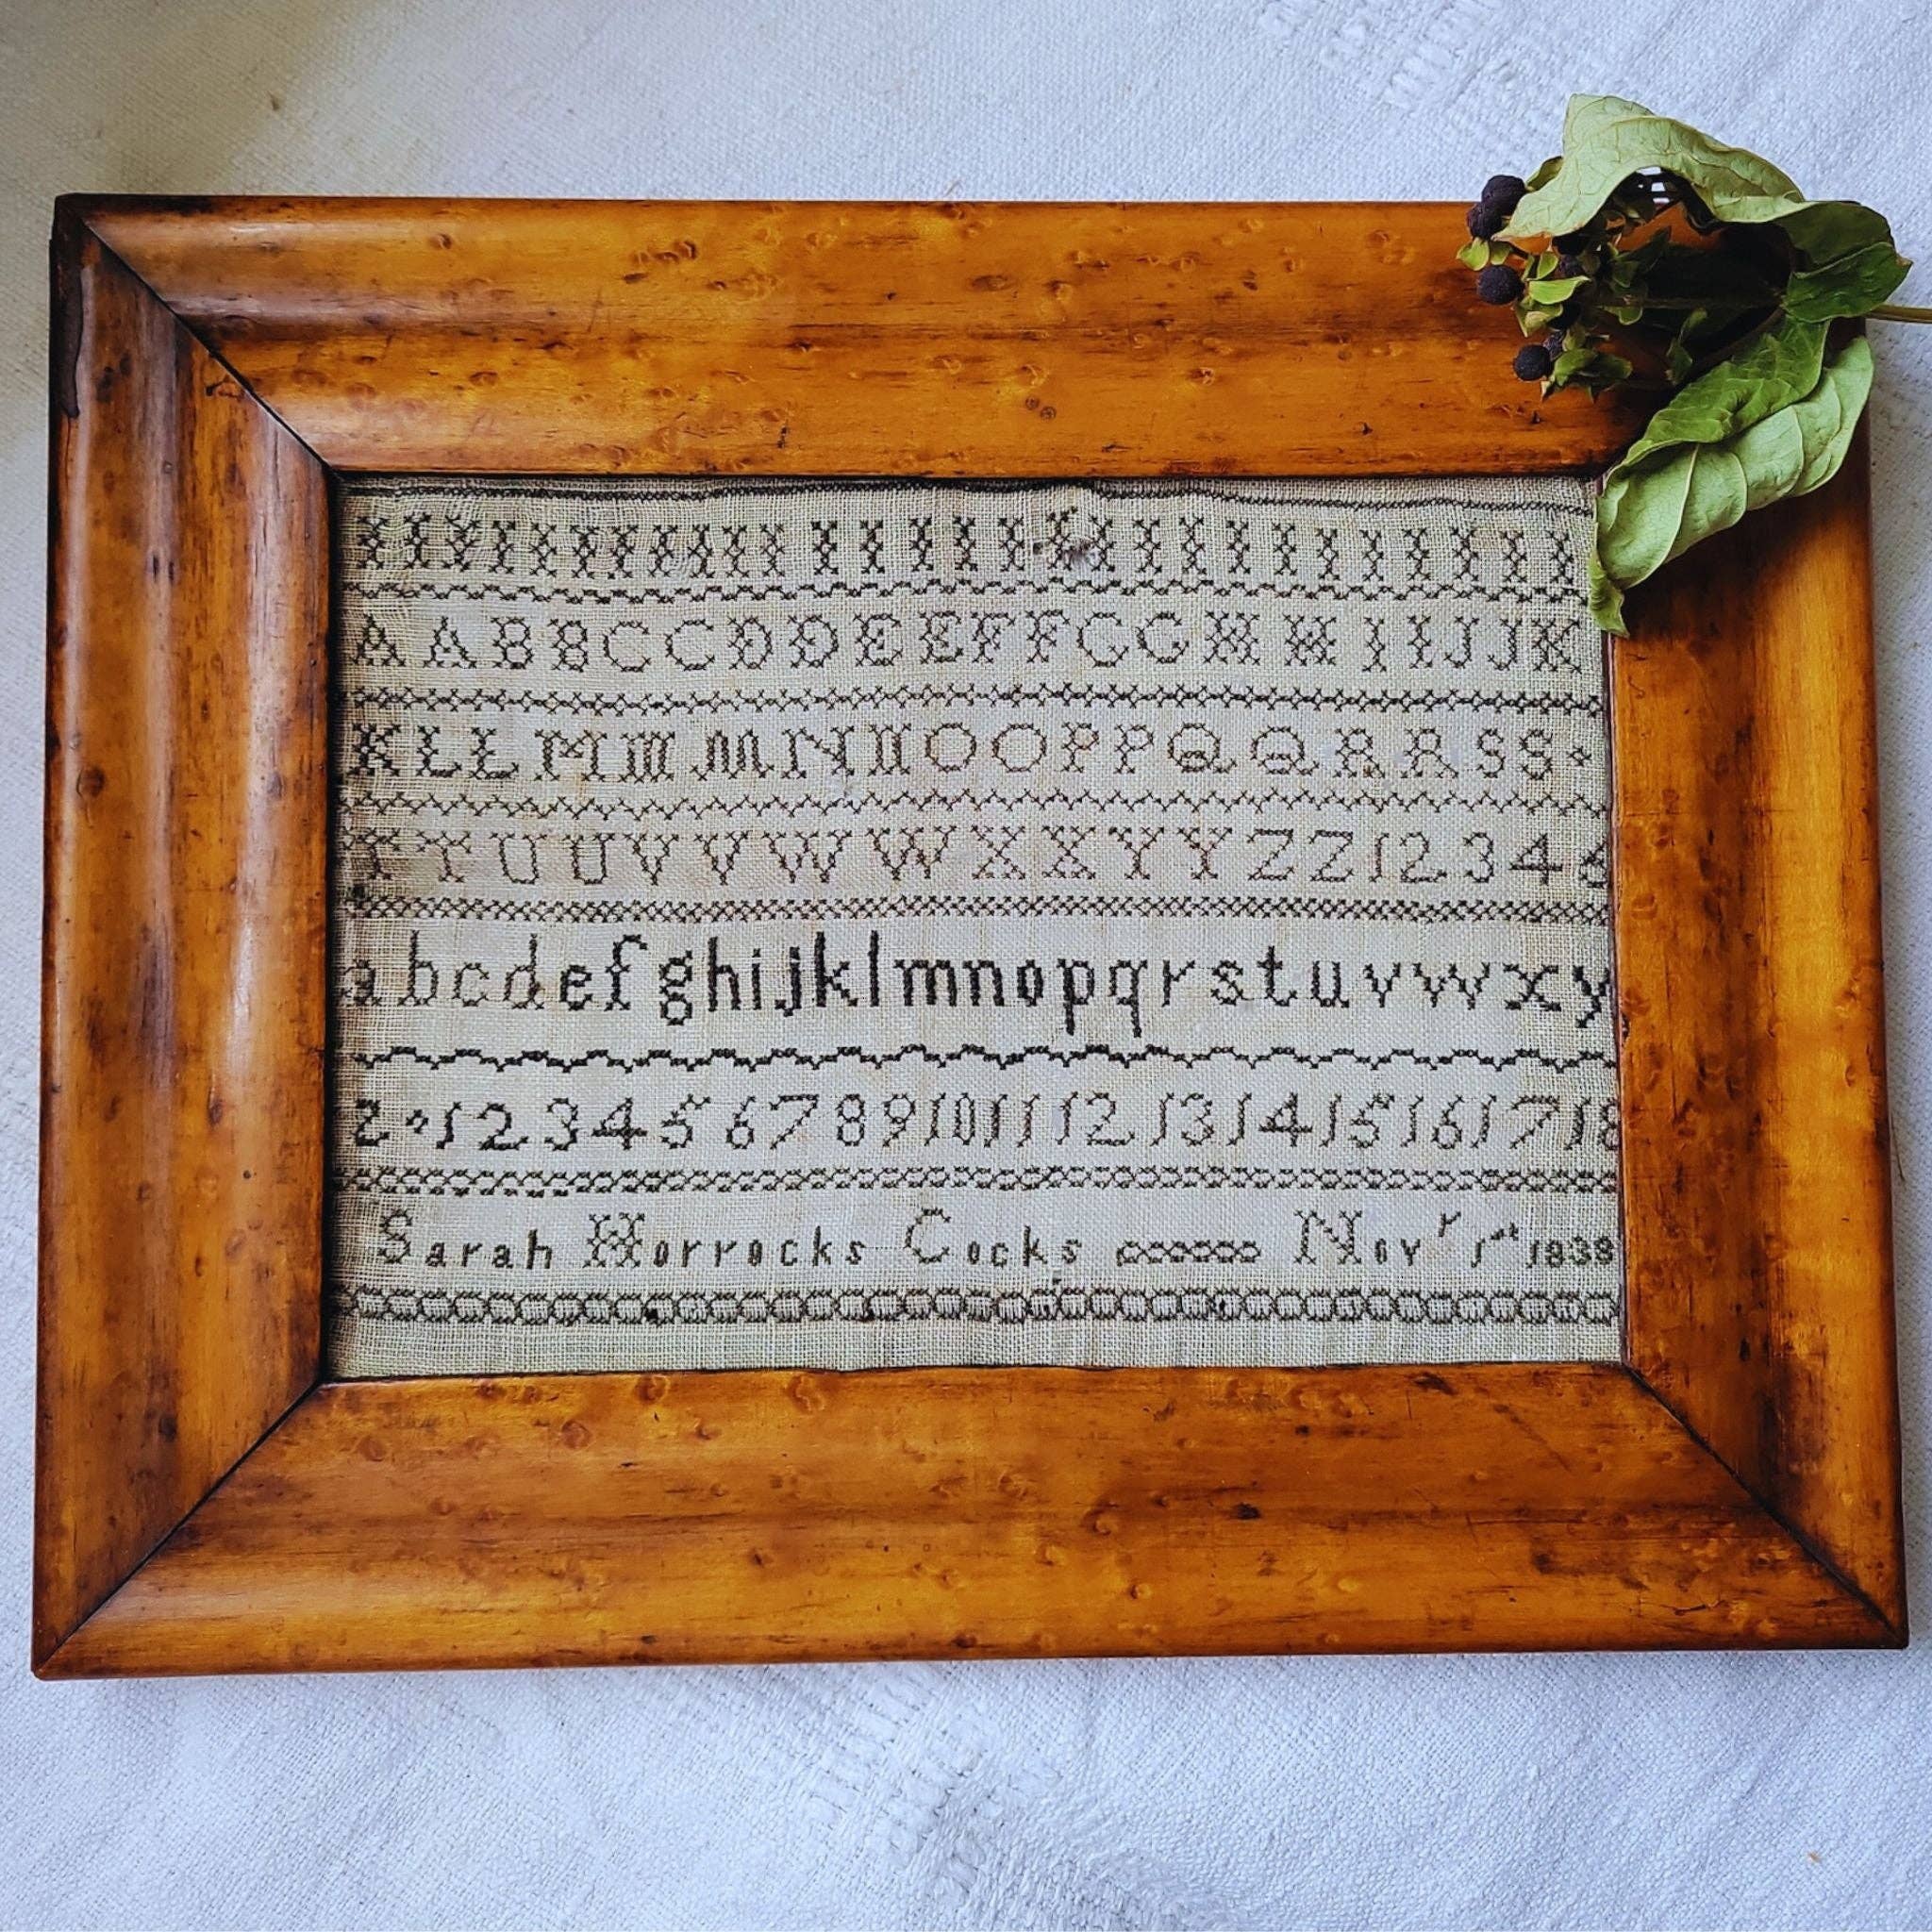 A A B B C C D D E E F F G G H H I I J J K
K L L M M M N N O O P P Q Q R R S S
T T U U V V W W X X Y Y Z Z 1 2 3 4 6
a b c d e f g h i j k l m n o p q r s t u v w x y
z 1 2 3 4 5 6 7 8 9 10 11 12 13 14 15 16 17 18
Sarah Horrocks Cocks Nov.r 1st 1838